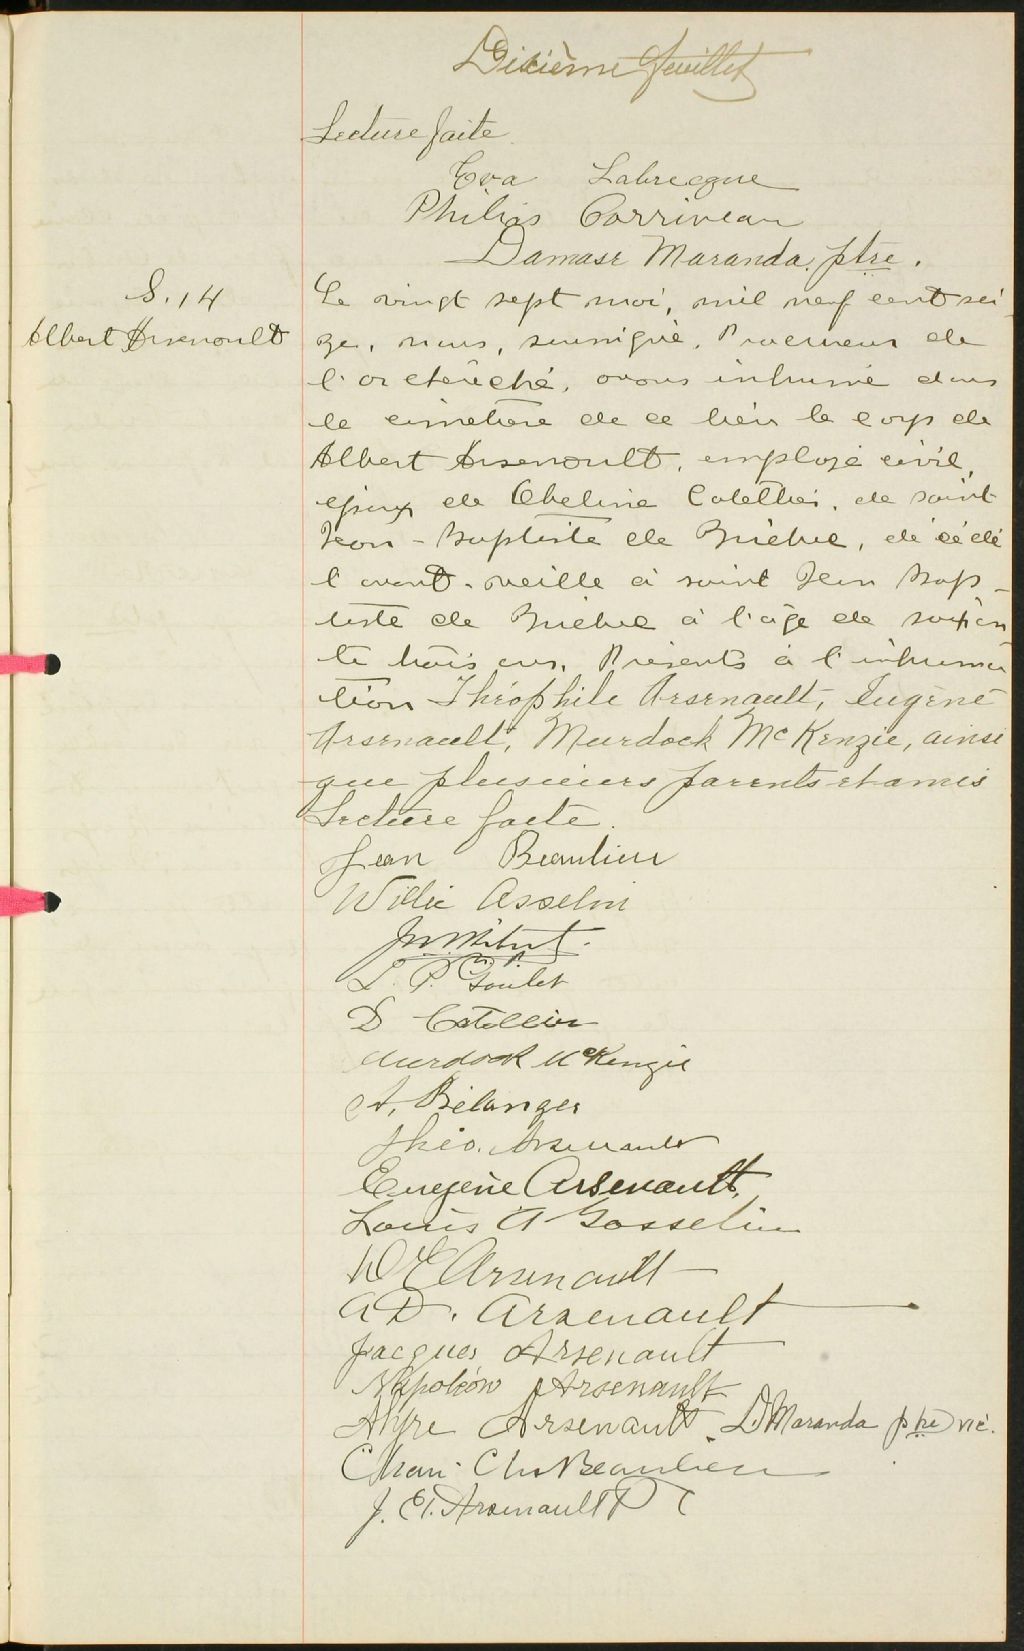 Dixième feuillet
Lecture faite
Eva Labrecque
Philias Corriveau
Damase Maranda, ptre.
S. 14
Albert Arsenoult
Le vingt sept mai, mil neuf cent sei
ze, nous, soussigné, Procureur de
l'archevêché, avons inhumé dans
le cimetière de ce lieu le corps de
Albert Arsenoult, employé civil,
époux de Obeline Catellier, de saint
Jean-Baptiste de Québec, décédé
l'avant-veille à saint Jean Bap-
tiste de Québec à l'âge de soixan
te trois ans. Présents à l'inhuma
tion Théophile Arsenault, Eugène
Arsenault, Murdock McKenzie, ainsi
que plusieurs parents et amis
Lecture faite.
Jean Beaulieu
Willie Asselin
L. P. Goulet
D Catellier
Murdock McKenzie
A. Bélanger
Théo. Arsenault
Eugène Arsenault
Louis A Gosselin
W E Arsenault
A D. Arsenault
Jacques Arsenault
Napoléon Arsenault
Alyre Arsenault D. Maranda ptre vic.
Chs Beaulieu
J. E. Arsenault